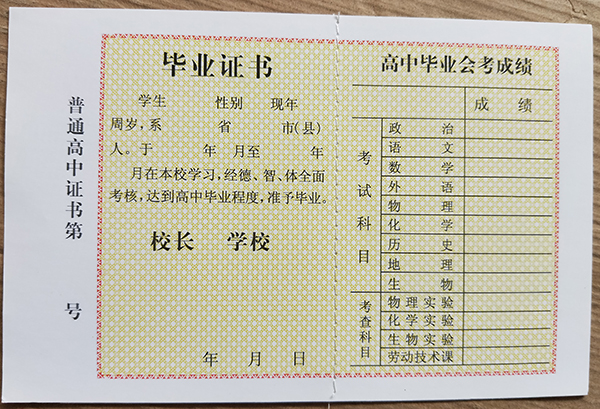 普通高中证书第 号
毕业证书
学生 性别 现年
周岁，系 省 市(县)
人。于 年 月至 年
月在本校学习，经德、智、体全面
考核，达到高中毕业程度，准予毕业。
校长 学校
年 月 日
高中毕业会考成绩
成 绩
考试科目
政 治
语 文
数 学
外 语
物 理
化 学
历 史
地 理
生 物
考查科目
物理实验
化学实验
生物实验
劳动技术课